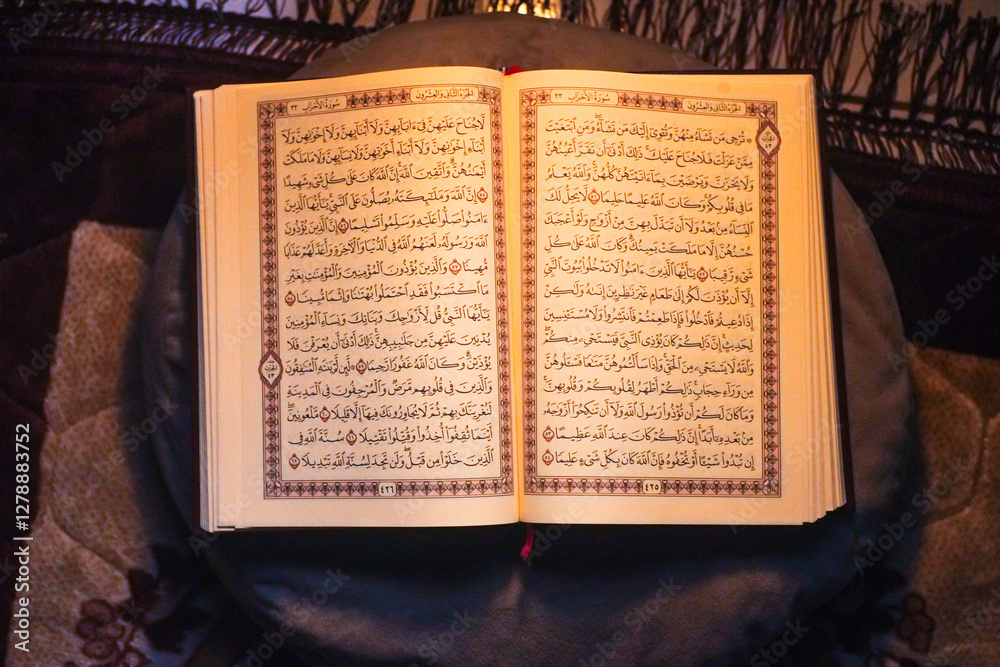 الجزء الثاني والعشرون
سورة الأحزاب
٣٣
۞ تُرْجِي مَن تَشَآءُ مِنْهُنَّ وَتُـْٔوِىٓ إِلَيْكَ مَن تَشَآءُ ۖ وَمَنِ ٱبْتَغَيْتَ
مِمَّنْ عَزَلْتَ فَلَا جُنَاحَ عَلَيْكَ ۚ ذَٰلِكَ أَدْنَىٰٓ أَن تَقَرَّ أَعْيُنُهُنَّ
وَلَا يَحْزَنَّ وَيَرْضَيْنَ بِمَآ ءَاتَيْتَهُنَّ كُلُّهُنَّ ۚ وَٱللَّهُ يَعْلَمُ
مَا فِى قُلُوبِكُمْ ۚ وَكَانَ ٱللَّهُ عَلِيمًا حَلِيمًا ٥١ لَّا يَحِلُّ لَكَ
ٱلنِّسَآءُ مِنۢ بَعْدُ وَلَآ أَن تَبَدَّلَ بِهِنَّ مِنْ أَزْوَٰجٍ وَلَوْ أَعْجَبَكَ
حُسْنُهُنَّ إِلَّا مَا مَلَكَتْ يَمِينُكَ ۗ وَكَانَ ٱللَّهُ عَلَىٰ كُلِّ
شَىْءٍ رَّقِيبًا ٥٢ يَٰٓأَيُّهَا ٱلَّذِينَ ءَامَنُوا۟ لَا تَدْخُلُوا۟ بُيُوتَ ٱلنَّبِىِّ
إِلَّآ أَن يُؤْذَنَ لَكُمْ إِلَىٰ طَعَامٍ غَيْرَ نَٰظِرِينَ إِنَىٰهُ وَلَٰكِنْ
إِذَا دُعِيتُمْ فَٱدْخُلُوا۟ فَإِذَا طَعِمْتُمْ فَٱنتَشِرُوا۟ وَلَا مُسْتَـْٔنِسِينَ
لِحَدِيثٍ ۚ إِنَّ ذَٰلِكُمْ كَانَ يُؤْذِى ٱلنَّبِىَّ فَيَسْتَحْىِۦ مِنكُمْ ۖ
وَٱللَّهُ لَا يَسْتَحْىِۦ مِنَ ٱلْحَقِّ ۚ وَإِذَا سَأَلْتُمُوهُنَّ مَتَٰعًا فَسْـَٔلُوهُنَّ
مِن وَرَآءِ حِجَابٍ ۚ ذَٰلِكُمْ أَطْهَرُ لِقُلُوبِكُمْ وَقُلُوبِهِنَّ ۚ
وَمَا كَانَ لَكُمْ أَن تُؤْذُوا۟ رَسُولَ ٱللَّهِ وَلَآ أَن تَنكِحُوٓا۟ أَزْوَٰجَهُۥ
مِنۢ بَعْدِهِۦٓ أَبَدًا ۚ إِنَّ ذَٰلِكُمْ كَانَ عِندَ ٱللَّهِ عَظِيمًا ٥٣
إِن تُبْدُوا۟ شَيْـًٔا أَوْ تُخْفُوهُ فَإِنَّ ٱللَّهَ كَانَ بِكُلِّ شَىْءٍ عَلِيمًا ٥٤
٤٢٥
الجزء الثاني والعشرون
سورة الأحزاب
٣٣
لَّا جُنَاحَ عَلَيْهِنَّ فِىٓ ءَابَآئِهِنَّ وَلَآ أَبْنَآئِهِنَّ وَلَآ إِخْوَٰنِهِنَّ وَلَآ
أَبْنَآءِ إِخْوَٰنِهِنَّ وَلَآ أَبْنَآءِ أَخَوَٰتِهِنَّ وَلَا نِسَآئِهِنَّ وَلَا مَا مَلَكَتْ
أَيْمَٰنُهُنَّ ۗ وَٱتَّقِينَ ٱللَّهَ ۚ إِنَّ ٱللَّهَ كَانَ عَلَىٰ كُلِّ شَىْءٍ شَهِيدًا
٥٥ إِنَّ ٱللَّهَ وَمَلَٰٓئِكَتَهُۥ يُصَلُّونَ عَلَى ٱلنَّبِىِّ ۚ يَٰٓأَيُّهَا ٱلَّذِينَ
ءَامَنُوا۟ صَلُّوا۟ عَلَيْهِ وَسَلِّمُوا۟ تَسْلِيمًا ٥٦ إِنَّ ٱلَّذِينَ يُؤْذُونَ
ٱللَّهَ وَرَسُولَهُۥ لَعَنَهُمُ ٱللَّهُ فِى ٱلدُّنْيَا وَٱلْءَاخِرَةِ وَأَعَدَّ لَهُمْ عَذَابًا
مُّهِينًا ٥٧ وَٱلَّذِينَ يُؤْذُونَ ٱلْمُؤْمِنِينَ وَٱلْمُؤْمِنَٰتِ بِغَيْرِ
مَا ٱكْتَسَبُوا۟ فَقَدِ ٱحْتَمَلُوا۟ بُهْتَٰنًا وَإِثْمًا مُّبِينًا ٥٨
يَٰٓأَيُّهَا ٱلنَّبِىُّ قُل لِّأَزْوَٰجِكَ وَبَنَاتِكَ وَنِسَآءِ ٱلْمُؤْمِنِينَ
يُدْنِينَ عَلَيْهِنَّ مِن جَلَٰبِيبِهِنَّ ۚ ذَٰلِكَ أَدْنَىٰٓ أَن يُعْرَفْنَ فَلَا
يُؤْذَيْنَ ۗ وَكَانَ ٱللَّهُ غَفُورًا رَّحِيمًا ٥٩ ۞ لَّئِن لَّمْ يَنتَهِ ٱلْمُنَٰفِقُونَ
وَٱلَّذِينَ فِى قُلُوبِهِم مَّرَضٌ وَٱلْمُرْجِفُونَ فِى ٱلْمَدِينَةِ
لَنُغْرِيَنَّكَ بِهِمْ ثُمَّ لَا يُجَاوِرُونَكَ فِيهَآ إِلَّا قَلِيلًا ٦٠ مَّلْعُونِينَ ۖ
أَيْنَمَا ثُقِفُوٓا۟ أُخِذُوا۟ وَقُتِّلُوا۟ تَقْتِيلًا ٦١ سُنَّةَ ٱللَّهِ فِى
ٱلَّذِينَ خَلَوْا۟ مِن قَبْلُ ۖ وَلَن تَجِدَ لِسُنَّةِ ٱللَّهِ تَبْدِيلًا ٦٢
٤٢٦
Adobe Stock | #1278883752